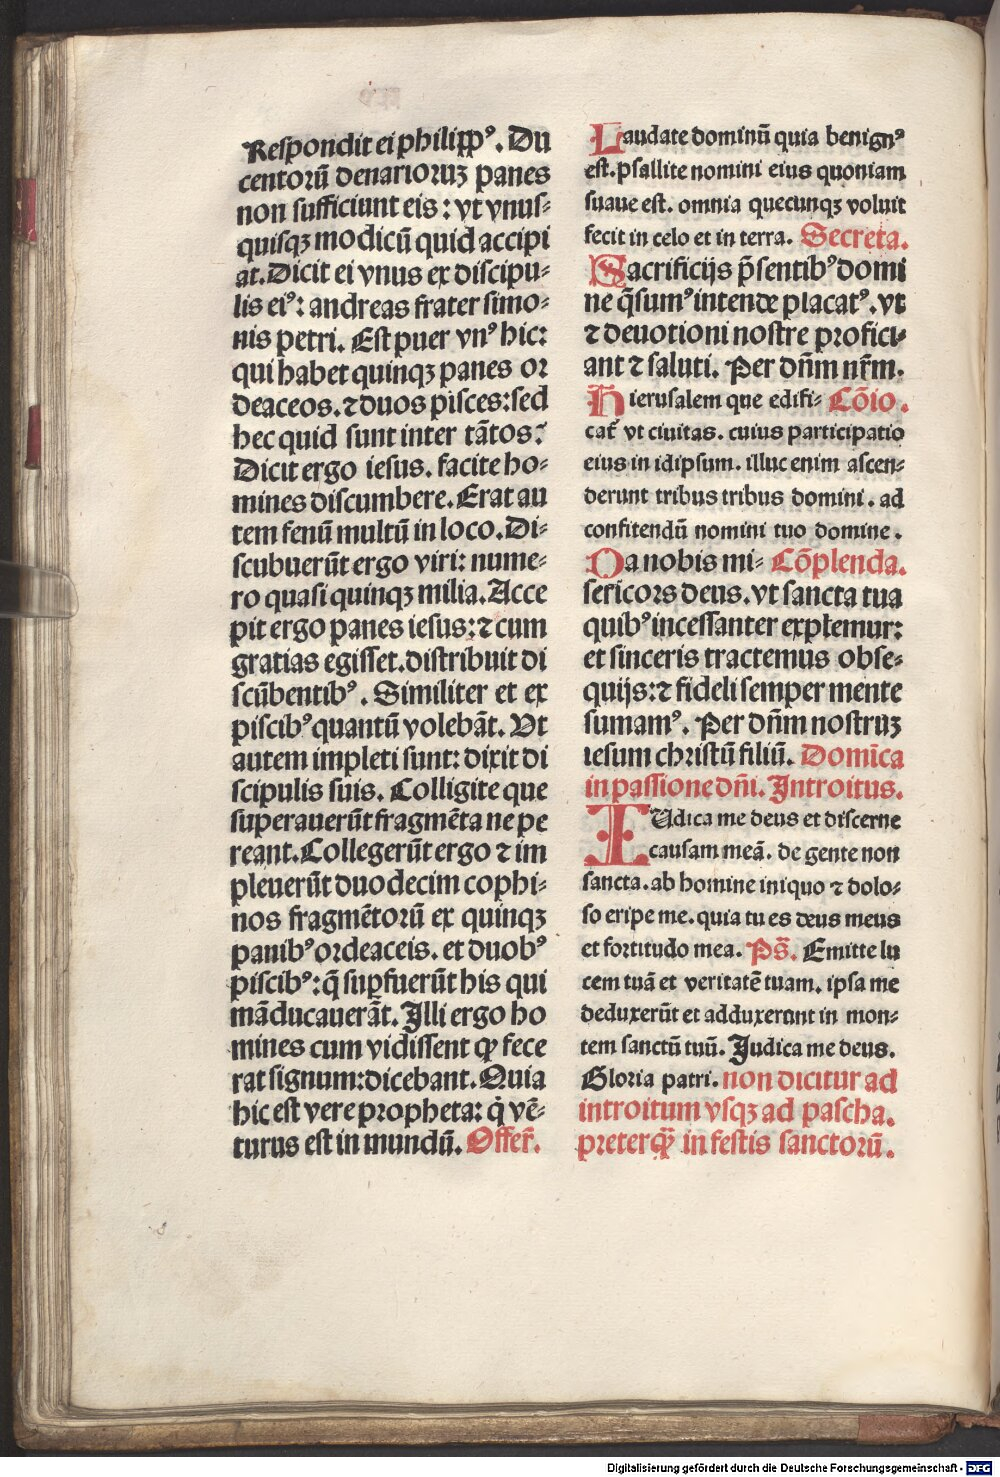 Respondit ei philippꝰ. Du
centorū denarioruꝫ panes
non sufficiunt eis: vt vnus⸗
quisqꝫ modicū quid accipi
at. Dicit ei vnus ex discipu⸗
lis eiꝰ: andreas frater simo⸗
nis petri. Est puer vnꝰ hic:
qui habet quinqꝫ panes or
deaceos. ⁊ duos pisces: sed
hec quid sunt inter tātos?
Dicit ergo iesus. facite ho⸗
mines discumbere. Erat au
tem fenū multū in loco. Di⸗
scubuerūt ergo viri: nume⸗
ro quasi quinqꝫ milia. Acce
pit ergo panes iesus: ⁊ cum
gratias egisset. distribuit di
scūbentibꝰ. Similiter et ex
piscibꝰ quantū volebāt. Ut
autem impleti sunt: dixit di
scipulis suis. Colligite que
superauerūt fragmēta ne pe
reant. Collegerūt ergo ⁊ im
pleuerūt duodecim cophi⸗
nos fragmētorū ex quinqꝫ
panibꝰ ordeaceis. et duobꝰ
piscibꝰ: q̄ suꝑfuerūt his qui
māducauerāt. Illi ergo ho
mines cum vidissent ꝙ fece
rat signum: dicebant. Quia
hic est vere propheta: q̇ vē⸗
turus est in mundū. Offer̄.
Laudate dominū quia benignꝰ
est. psallite nomini eius quoniam
suaue est. omnia quecunqꝫ voluit
fecit in celo et in terra. Secreta.
Sacrificijs p̄sentibꝰ domi
ne q̄sumꝰ intende placatꝰ. vt
⁊ deuotioni nostre profici⸗
ant ⁊ saluti. Per dn̄m nr̄m.
Hierusalem que edifi⸗ Cōio.
cat᷑ vt ciuitas. cuius participatio
eius in idipsum. illuc enim ascen⸗
derunt tribus tribus domini. ad
confitendū nomini tuo domine.
Da nobis mi⸗ Cōplenda.
sericors deus. vt sancta tua
quibꝰ incessanter explemur:
et sinceris tractemus obse⸗
quijs: ⁊ fideli semper mente
sumamꝰ. Per dn̄m nostruꝫ
iesum christū filiū. Domīca
in passione dn̄i. Introitus.
IUdica me deus et discerne
causam meā. de gente non
sancta. ab homine iniquo ⁊ dolo⸗
so eripe me. quia tu es deus meus
et fortitudo mea. Ps̄. Emitte lu
cem tuā et veritatē tuam. ipsa me
deduxerūt et adduxerunt in mon⸗
tem sanctū tuū. Judica me deus.
Gloria patri. non dicitur ad
introitum vsqꝫ ad pascha.
preterqꝫ̄ in festis sanctorū.
Digitalisierung gefördert durch die Deutsche Forschungsgemeinschaft - DFG